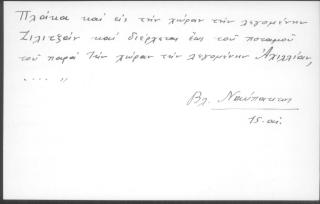 Πλάκα καὶ εἰς τὴν χώραν τὴν λεγομένην
Ζιλιτζὰν καὶ διέρχεται ἕως τοῦ ποταμοῦ
τοῦ παρὰ τὴν χώραν τὴν λεγομένην Ἀχιλλίαν,
.... "
Βλ. Ναύπακτον
15. αἰ.